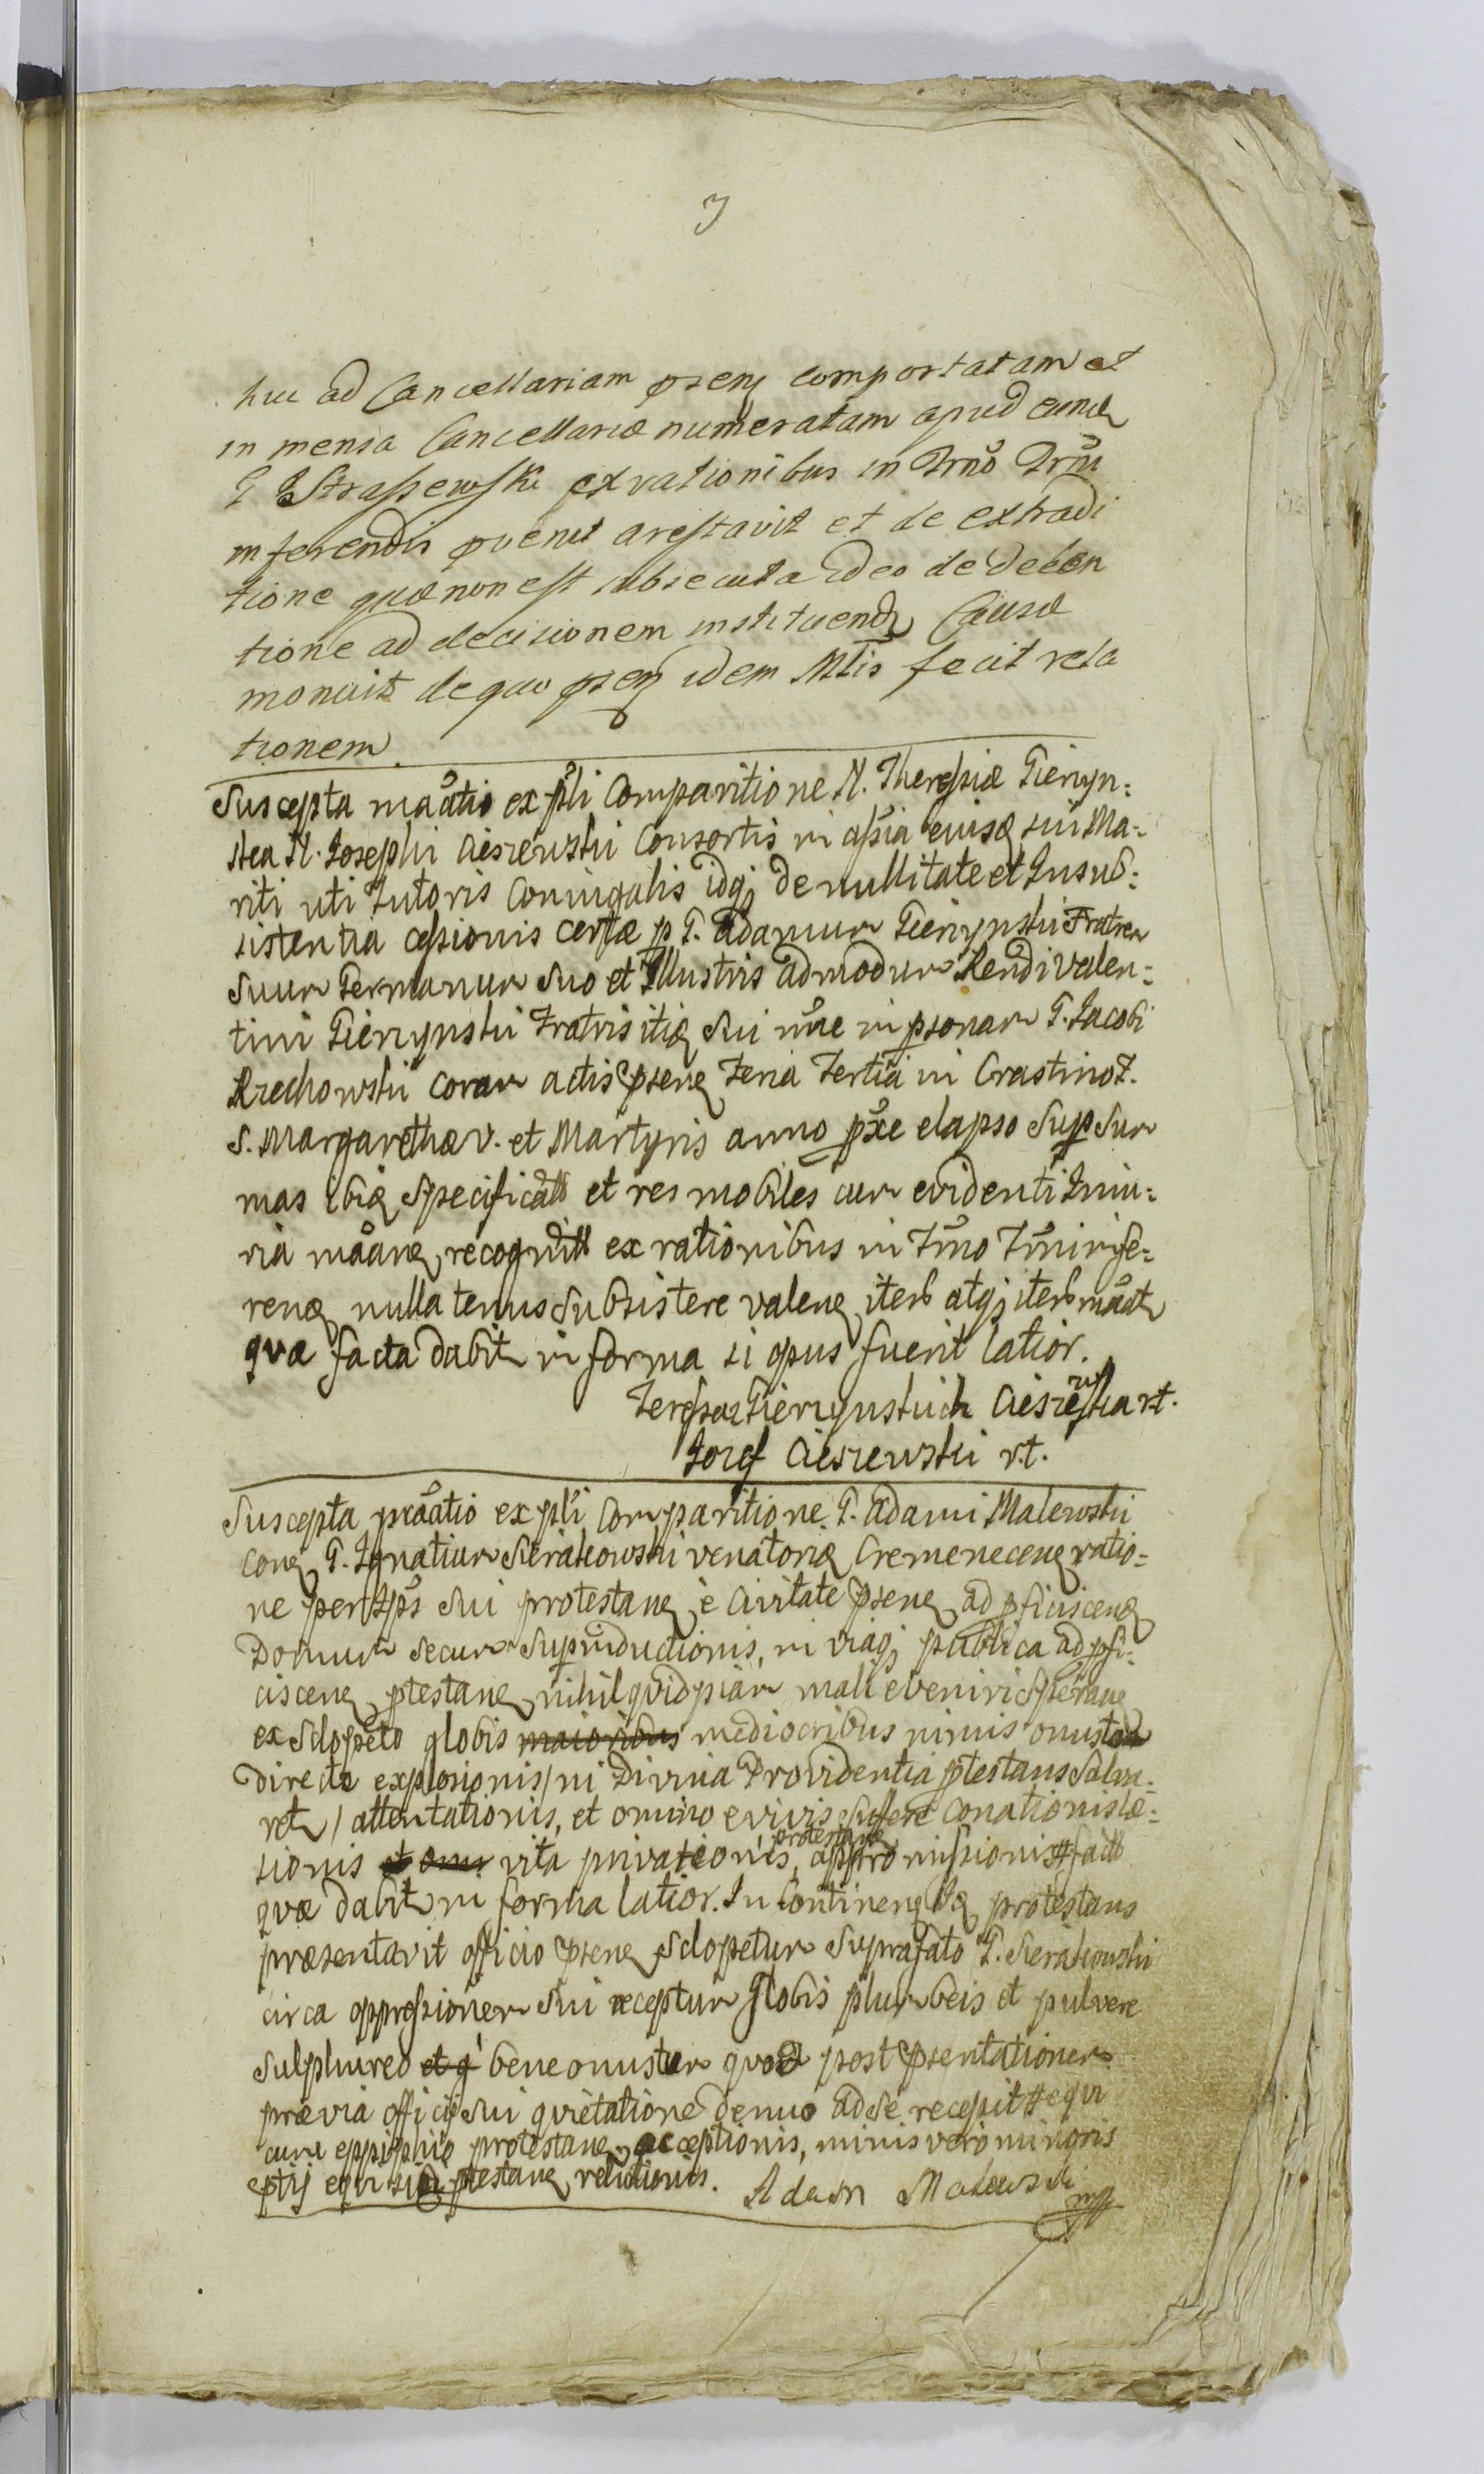 huc ad Cancellariam psenę comportatam et
in mensa Cancellariæ numeratam apud eund
G Straszewski ex rationibus in Trno Trni
inferendis pvenit arestavit et de extradi
tione quæ non est subsecuta ideo de deten
tione ad decisionem instituendę Causæ
monuit de quo psenę idem Mtis fecit rela
tionem.
Suscepta mãatio ex psli Comparitione N. Theresiæ Pieniyn:
skea N. Josephi Cieszewski Consortis in assia eiusdę sui Ma-
riti uti Tutoris Coniugalis idqj de nullitate et Insub:
sistentia cessionis certæ p G. Adamum Fratrem
Suum Germanum Suo et Illustris admodum Rendi Valen:
tini Fratris itidę sui nõie in psonam G. Jacobi
Krzechowski coram actis psenę Feria Tertia in Crastino F.
S. Margarethæ V. et Martyris anno pxe elapso Sup Sum
mas ibidę Specificatts et res mobiles cum evidenti Iniu:
ria mãanę, recognitts ex rationibus in Trno Trni infe:
rendę nulla tenus Subsistere valenę, iterb atqj iterb mãatr
quæ facta dabitr in forma si opus fuerit latior.
Cieszewska rt.
Jozef Cieszewski r.t.
Suscepta prãatio ex psli Comparitione G. Adami Malewski
conę G. Ignatium Sierakowski venatoridę Cremenecenę ratio:
ne per ipss sui protestanę è Civitate psenę ad pficiscendę
Domum secum Supinductionis, in viaqj publica ad pfi:
ciscenę ptestanę nihil quidpiam mali eveniri Speranę
ex Sclopeto globis maioribus mediocribus nimis onustam
directe explosionis / ni Divina Providentia ptestans Salva:
retr / attentationis, et omnino e vivis suffere conationis læ:
sionis et omi vita privationis, protestanę appromissionis # facts
quæ dabitr in forma latior. In Continenę Idę protestans
præsentavit officio psenę Sclopetum Suprafato G. Sierakowski
circa oppressionem sui receptum globis plumbeis et pulvere
sulphureo et q bene onustum quod post psentationem
prævia officij sui quietatione denuo ad se recepit # equi
cum eppiphio protestanę acceptionis, minis vero minoris
ptij equi sibi ptestanę relictionis. Adam Malewski
mp